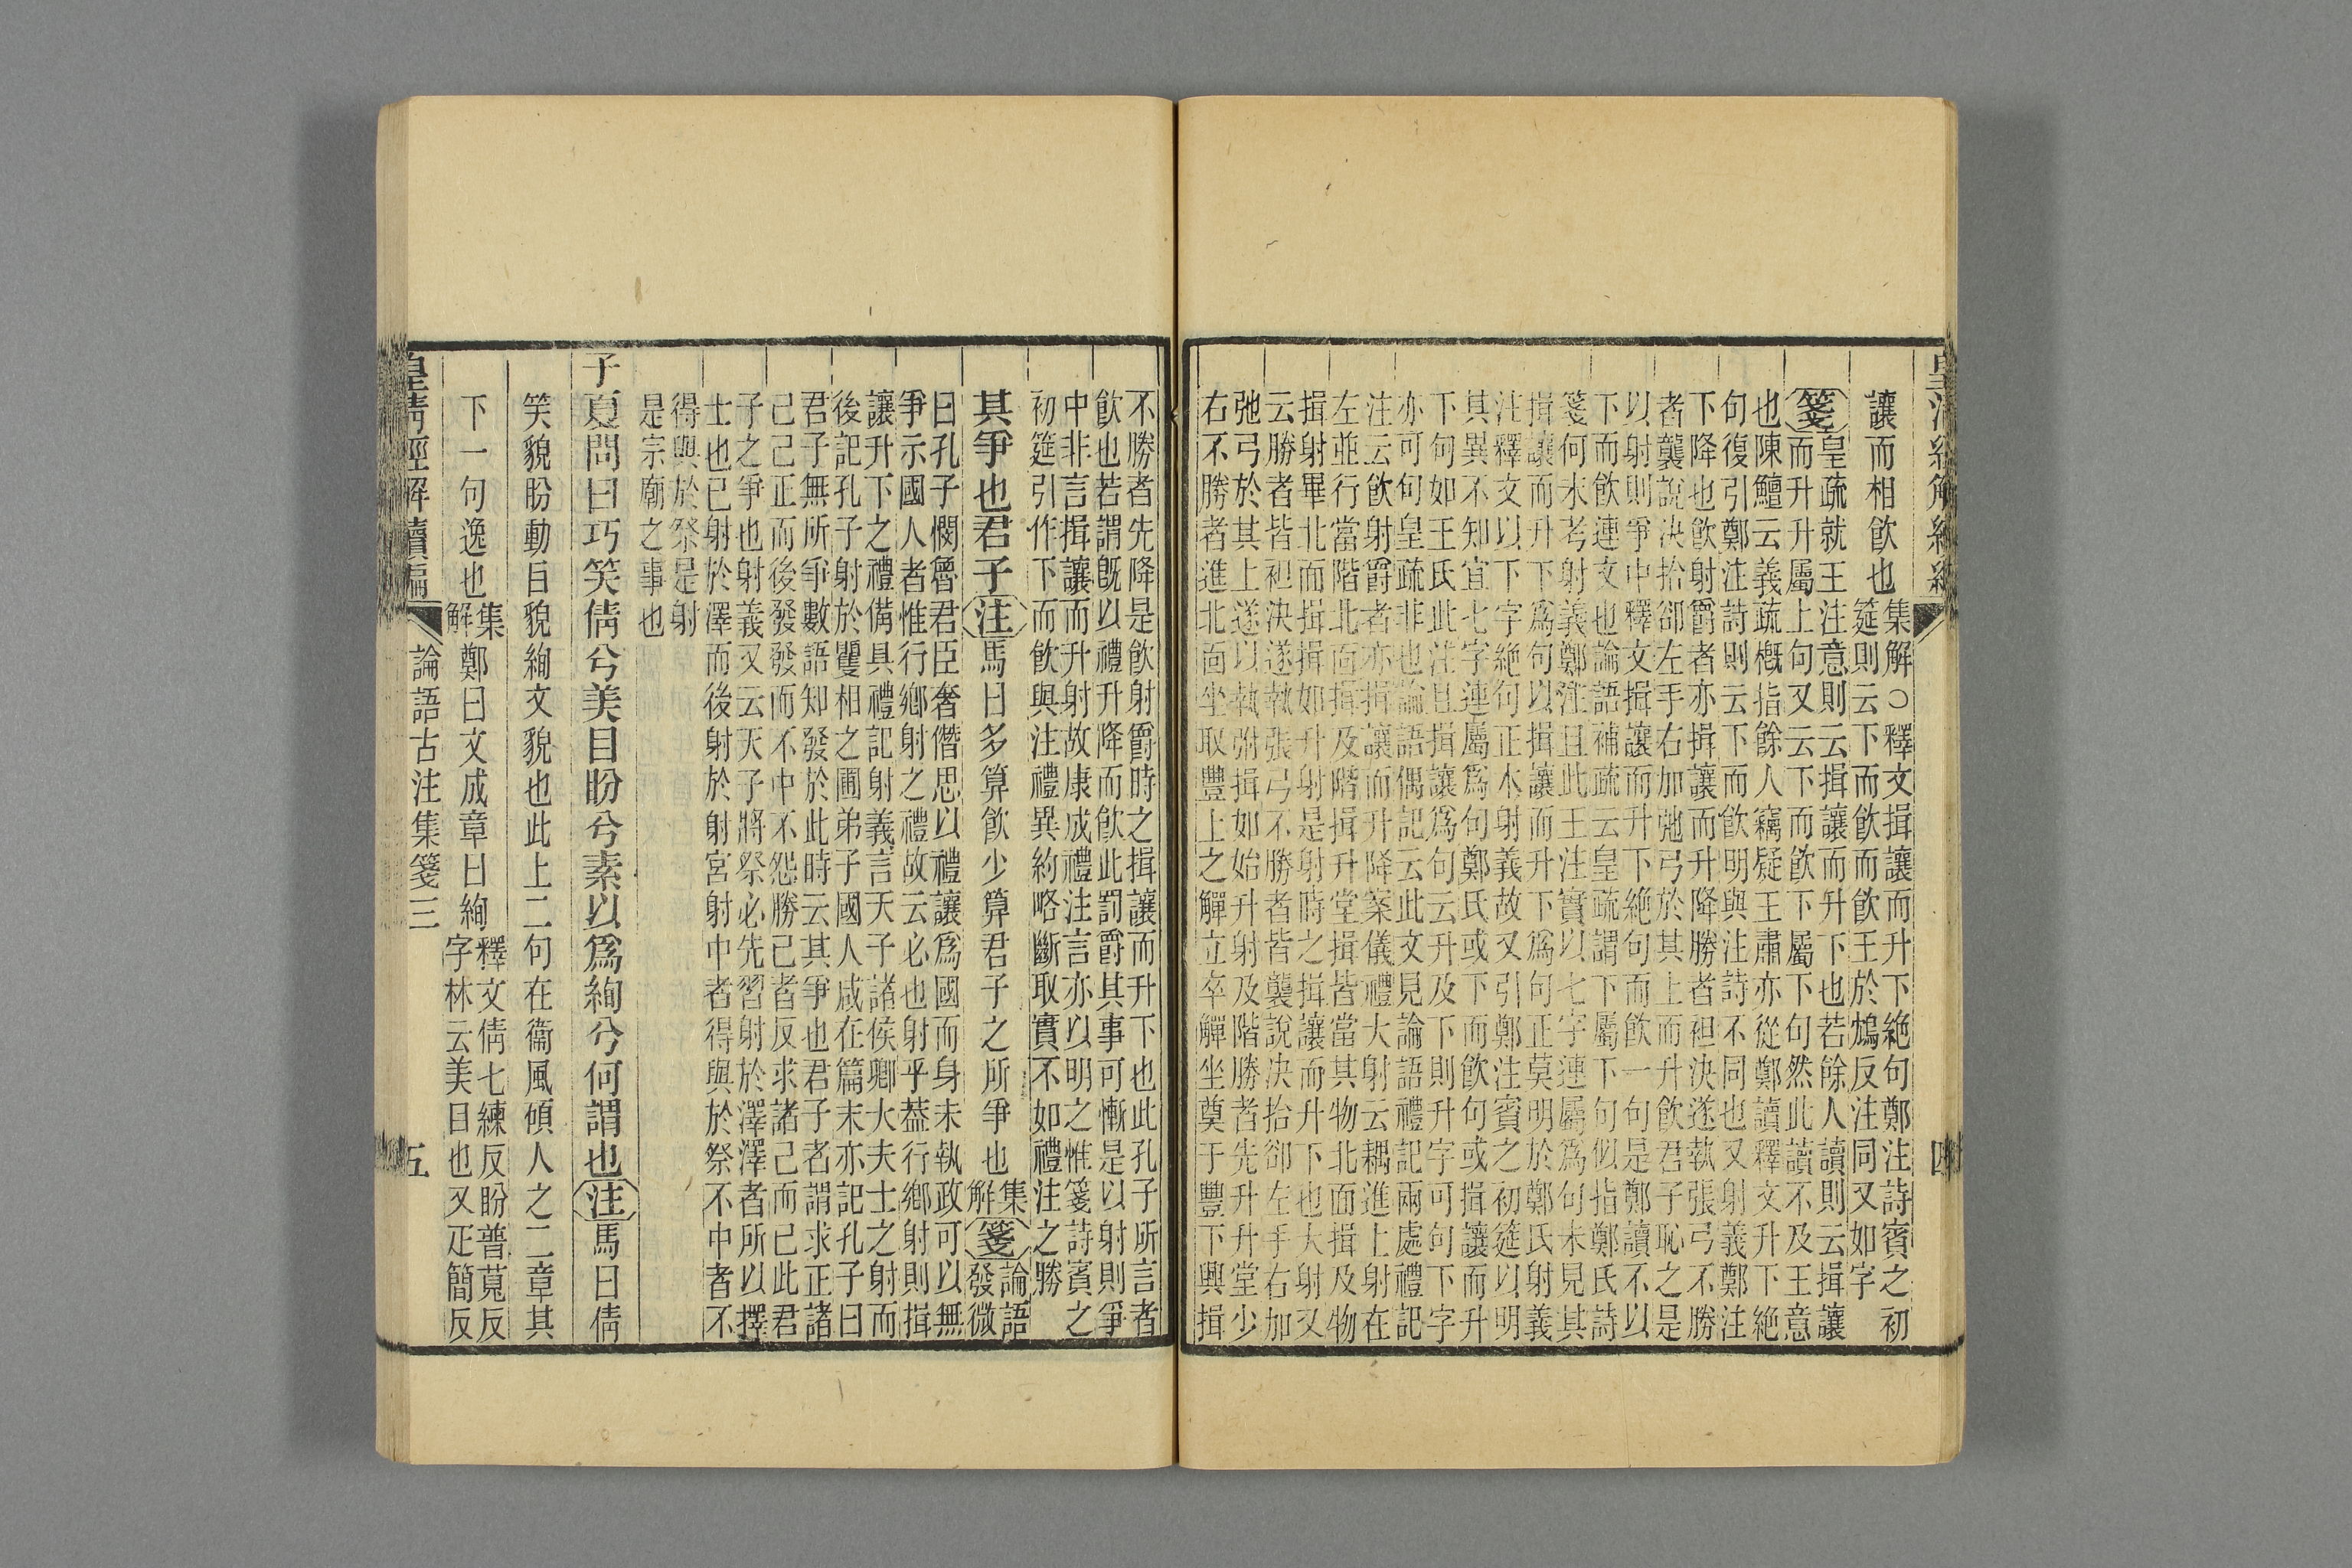 皇清經解續編 四
讓而相飲也集解○釋文揖讓而升下絶句鄭注詩賓之初
筵則云下而飲而飲王於鴆反注同又如字
箋皇疏就王注意則云揖讓而升下也若餘人讀則云揖讓
而升升屬上句又云下而飲下屬下句然此讀不及王意
也陳鱣云義疏槪指餘人竊疑王肅亦從鄭讀釋文升下絶
句復引鄭注詩則云下而飲明與注詩不同也又射義鄭注
下降也飲射爵者亦揖讓而升降勝者袒決遂執張弓不勝
者襲說决拾郤左手右加弛弓於其上而升飲君子恥之是
以射則爭中釋文揖讓而升下絶句而飲一句是鄭讀不以
下而飲連文也論語補疏云皇疏謂下屬下句似指鄭氏詩
箋何未考射義鄭注且此王注實以七字連屬爲句未見其
揖讓而升下爲句以揖讓而升下爲句正莫明於鄭氏射義
注釋文以下字絶句正本射義故又引鄭注賓之初筵以明
其異不知宜七字連屬爲句鄭氏或下而飲句或揖讓而升
下句如王氏此注且揖讓爲句云升及下則升字可句下字
亦可句皇疏非也論語偶記云此文見論語禮記兩處禮記
注云飲射爵者亦揖讓而升降案儀禮大射云耦進上射在
左並行當階北面揖及階揖升堂揖皆當其物北面揖及物
揖射畢北面揖揖如升射是射時之揖讓而升下也大射又
云勝者皆袒決遂執張弓不勝者皆襲說决拾郤左手右加
弛弓於其上遂以執弣揖如始升射及階勝者先升升堂少
右不勝者進北面坐取豐上之觶立卒觶坐奠于豐下興揖
不勝者先降是飲射爵時之揖讓而升下也此孔子所言者
飲也若謂旣以禮升降而飲此罰爵其事可慚是以射則爭
中非言揖讓而升射故康成禮注言亦以明之惟箋詩賓之
初筵引作下而飲與注禮異約略斷取實不如禮注之勝
其爭也君子注馬曰多算飲少算君子之所爭也集解箋論語發微
曰孔子憫魯君臣奢僭思以禮讓爲國而身未執政可以無
爭示國人者惟行鄉射之禮故云必也射乎葢行鄉射則揖
讓升下之禮備具禮記射義言天子諸侯卿大夫士之射而
後記孔子射於矍相之圃弟子國人咸在篇末亦記孔子曰
君子無所爭數語知發於此時云其爭也君子者謂求正諸
己己正而後發發而不中不怨勝己者反求諸己而已此君
子之爭也射義又云天子將祭必先習射於澤澤者所以擇
士也已射於澤而後射於射宮射中者得與於祭不中者不
得與於祭是射
是宗廟之事也
子夏問曰巧笑倩兮美目盼兮素以爲絢兮何謂也注馬曰倩
笑貌盼動目貌絢文貌也此上二句在衞風碩人之二章其
下一句逸也集解鄭曰文成章曰絢釋文倩七練反盼普莧反
字林云美目也又疋簡反
皇清經解續編 論語古注集箋三 五